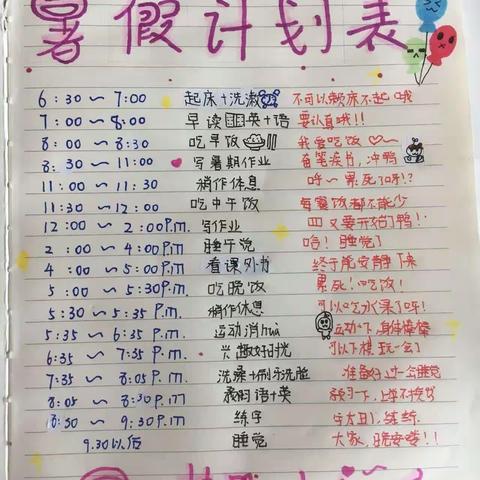 暑假计划表
6:30~7:00 起床+洗漱 不可以赖床不起哦
7:00~8:00 早读 英+语 要认真哦!!
8:00~8:30 吃早饭 我爱吃饭
8:30~11:00 写暑期作业 冲鸭
11:00~11:30 稍作休息 呼~累死了呀!?
11:30~12:00 吃中午饭 每餐饭都不能少
12:00~2:00P.m. 写作业 又要开始了鸭!
2:00~4:00P.m 睡午觉 唔!睡觉了
4:00~5:00P.m 看课外书 终于能安静下来
5:00~5:30P.m. 吃晚饭 累死!吃饭!
5:30~5:35P.m. 稍作休息 可以吃水果了呀!
5:35~6:35P.m. 运动消huà 运动一下,身体棒棒
6:35~7:35P.m. 兴趣好时光 可以下棋玩一会了
7:35~8:05P.m 洗澡+刷牙洗脸 准备好
8:05~8:30P.m 语+英
8:30~9:30P.m 练字 练练
9.30以后 睡觉 大家,晚安喽!!